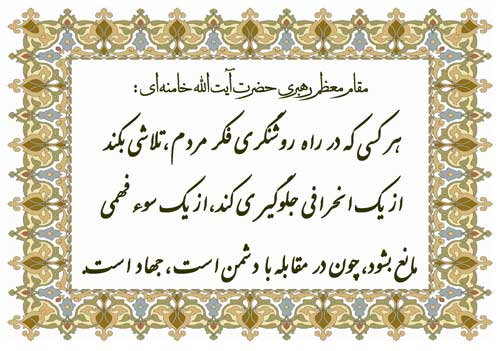 مقام معظم رهبری حضرت آیت‌الله خامنه‌ای :
هر کسی که در راه روشنگری فکر مردم، تلاشی بکند
از یک انحرافی جلوگیری کند، از یک سوء فهمی
مانع بشود، چون در مقابله با دشمن است، جهاد است.